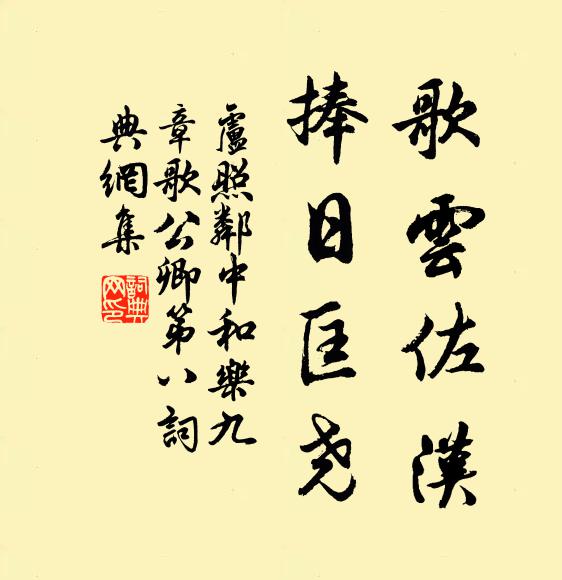 歌雲佐漢
捧日匡尧
盧照鄰中和樂九
章歌公卿第八詞
典網集
詞典
网印